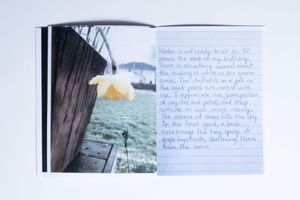 Winter is not ready to let go. It
snows the week of my birthday.
There is something surreal about
the dusting of white on the green
grass. The daffodils in a pot on
the back porch are coated with
ice. I appreciate the juxtaposition
of crystal and petal, and step
outside to look more closely.
The silence of snow fills the sky.
In the front yard, a branch
overhangs the tiny sprays of
grape hyacinth, sheltering them
from the snow.